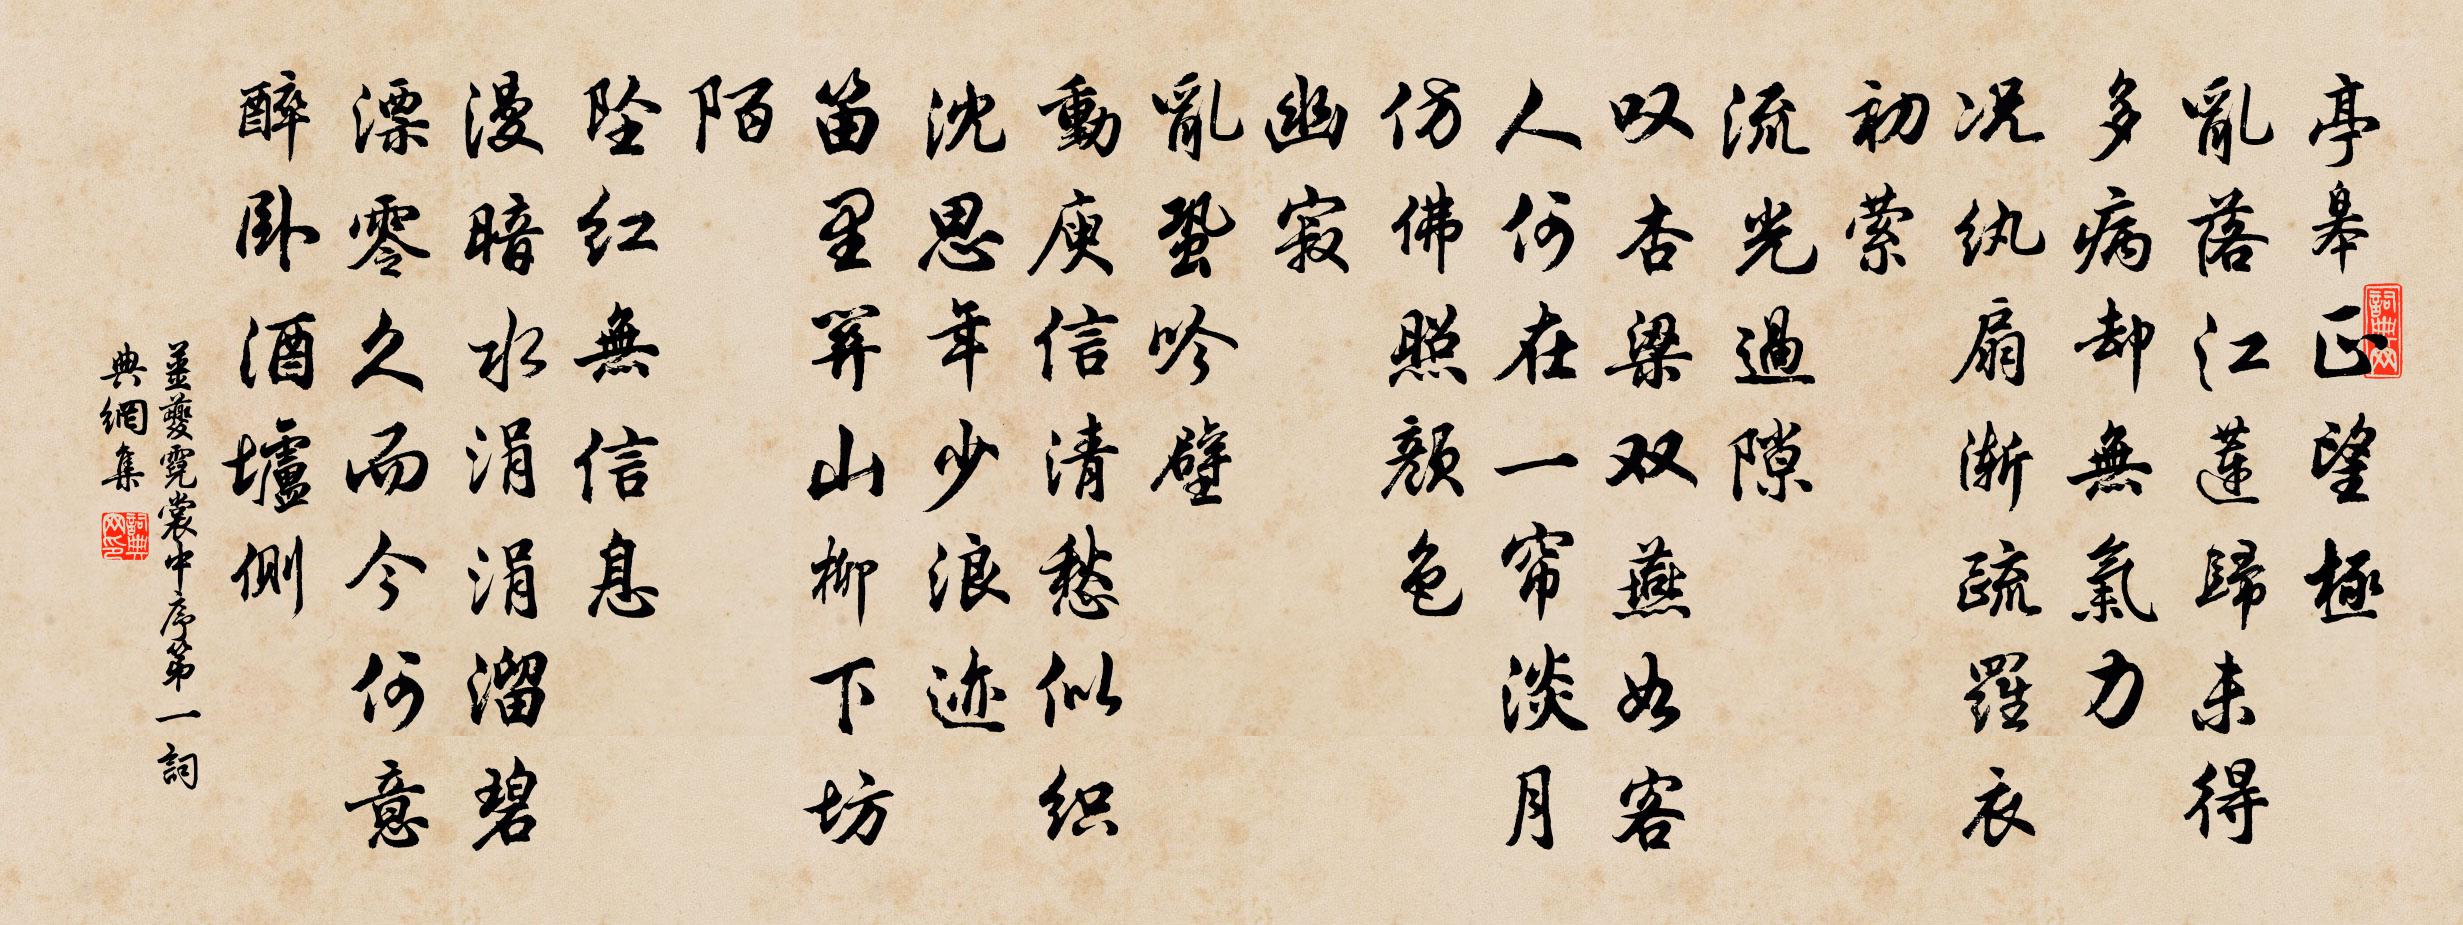 亭皋正望極
亂落江蓮歸未得
多病却無氣力
况纨扇渐疏羅衣
初索
流光過隙
叹杏梁双燕如客
人何在一帘淡月
仿佛照颜色
幽寂
亂蛩吟壁
動庾信清愁似织
沈思年少浪迹
笛里関山柳下坊
陌
坠红無信息
漫暗水涓涓溜碧
漂零久而今何意
醉卧酒壚側
姜夔霓裳中序第一詞
典網集
詞典网
詞典网印